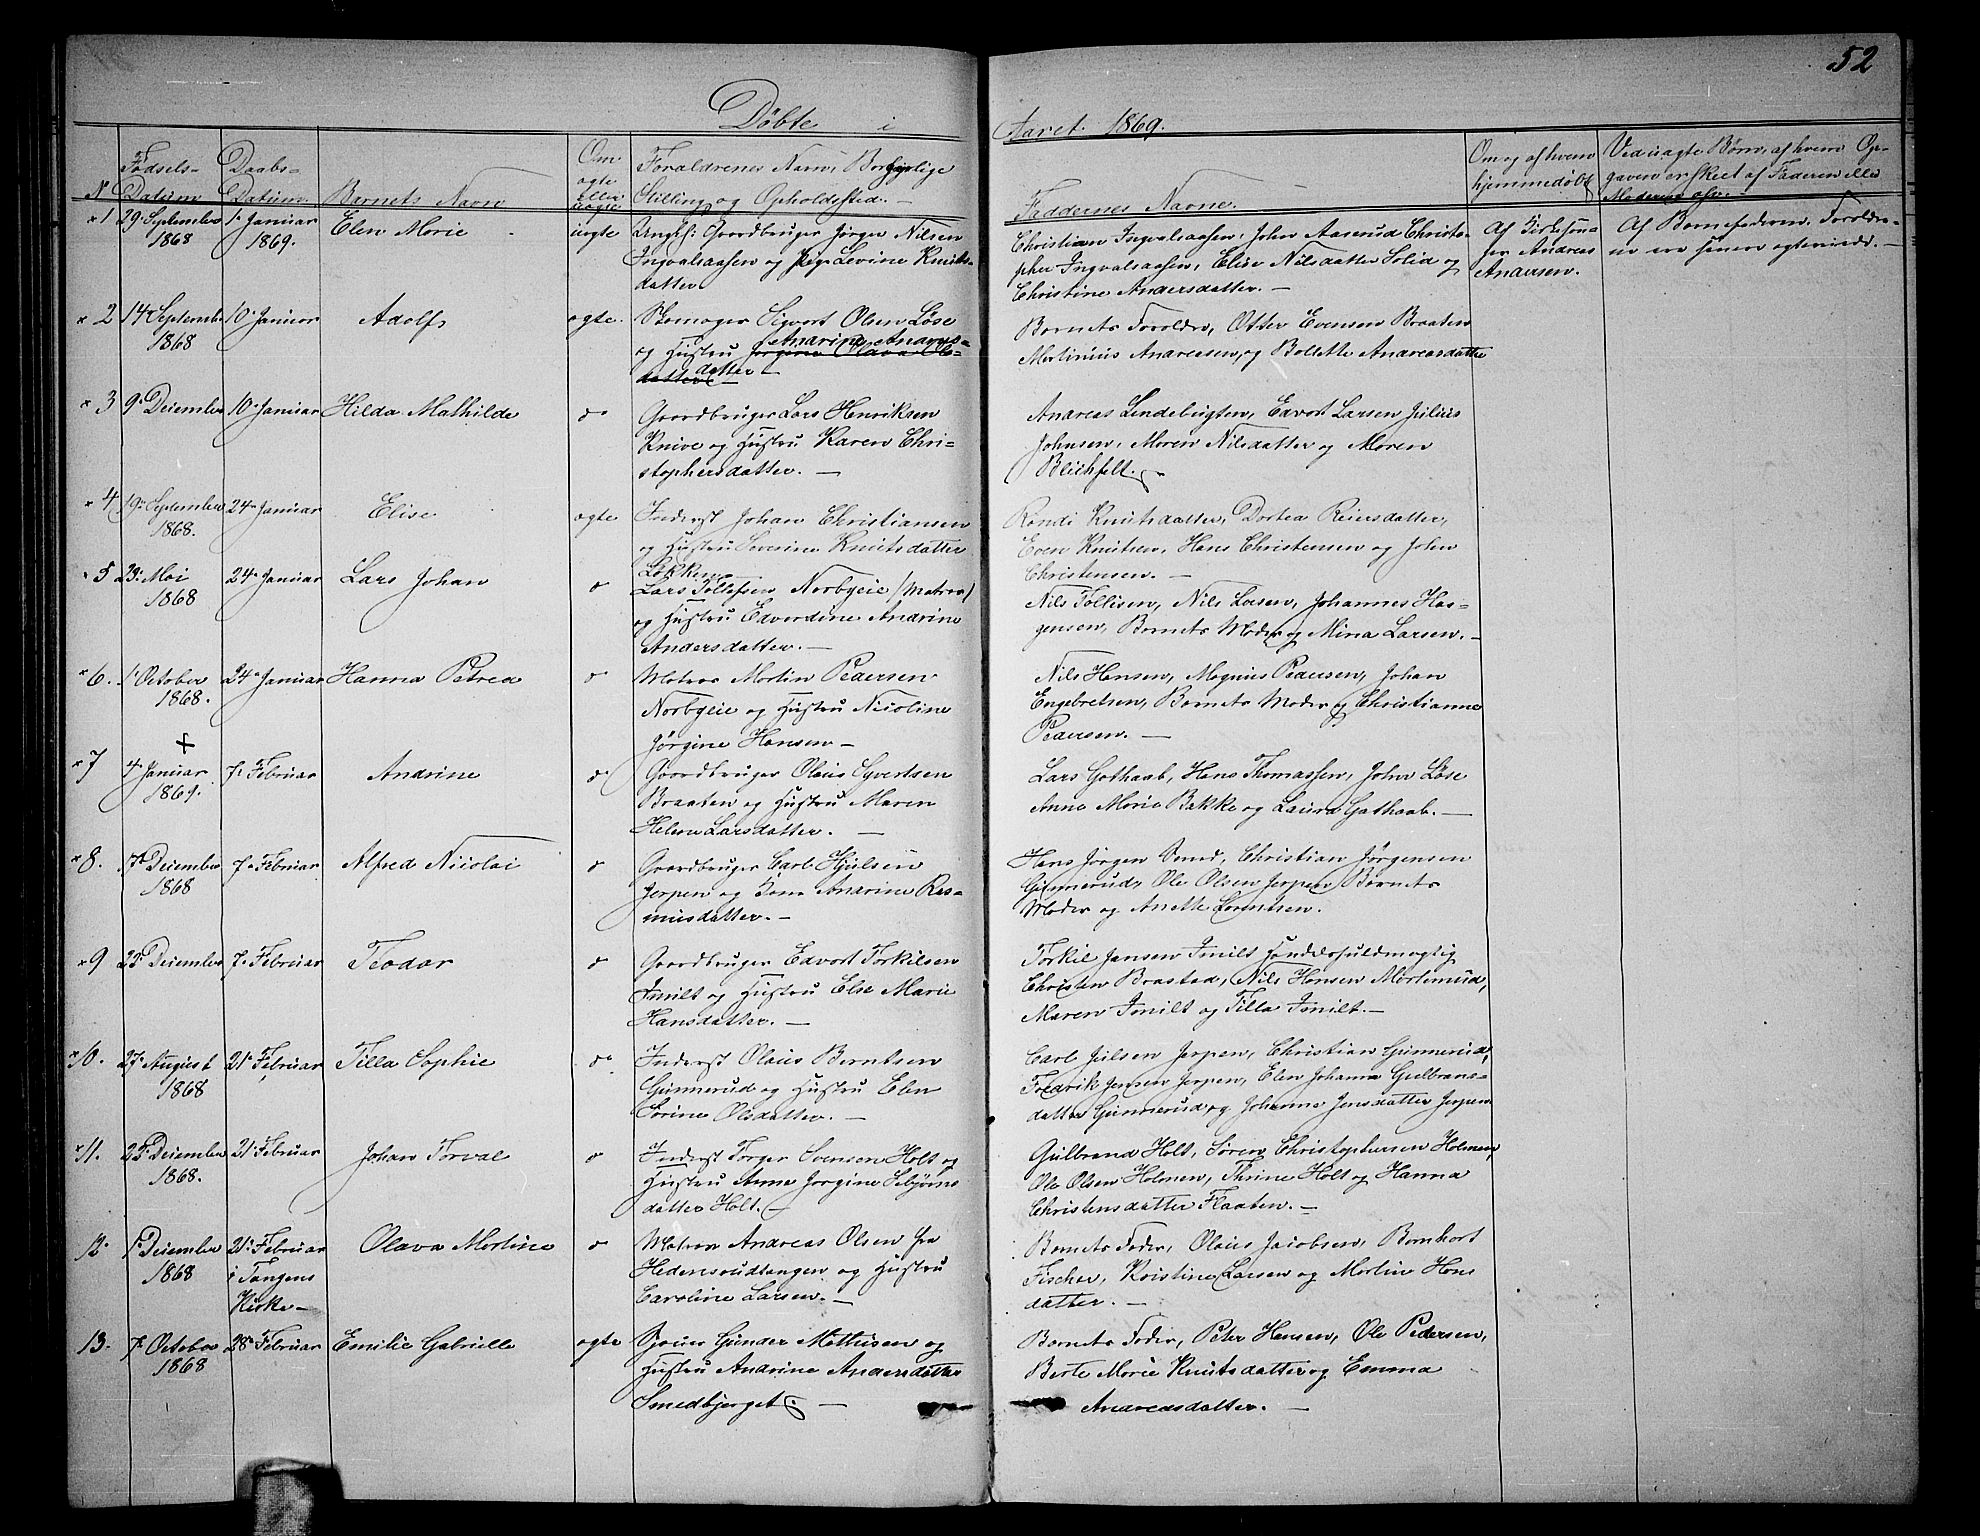 52
Döbte i Aaret 1869.
N. Födsels-Datum Daabs-Datum Barnets Navn Om ægte eller uægte Forældrenes Navn, Borgerlige Stilling og Opholdssted. Faddernes Navne. Om og af hvem hjemmedöbt Ved uægte Børn, af hvem Opgaven er skeet af Faderen eller Moderen osv.
1 29 September 1868 1 Januar 1869. Elen Marie uægte
Ungk: Gaardbruger Jörgen Nilsen
Ingvalsaasen og Pige Levine Knuts-
datter
Christian Ingvalsaasen, John Aaserud Christo-
pher Ingvalsaasen, Elise Nilsdatter Solid og
Christine Andersdatter. —
Af Kirkesan-
ger Andreas
Andersen.
Af Barnefaderen. Foreldre-
ne ere senere ægteviede. —
2 14 Septemb. 1868 10 Januar Adolf ægte.
Skomager Sigvart Olsen Löse
og Hustru Jorgine Olava Ols-
datter Andrine Andreas-
datter —
Barnets Foreldre, Otter Evensen Braaten
Martinius Andreasen, og Bollette Andreasdatter
3 9 December 10 Januar Hilda Mathilde do
Gaardbruger Lars Henriksen
Knive og Hustru Karen Chri-
stophersdatter. —
Andreas Lindebugten, Edvart Larsen Julius
Johnsen, Maren Nilsdatter og Maren
Blichfelt. —
4 19 September 1868. 24 Januar Elise ægte
Inderst Johan Christiansen
og Hustru Severine Knutsdatter
Løkken —
Randi Knutsdatter, Dortea Reiersdatter,
Even Knutsen, Hans Christensen og John
Christensen. —
5 23 Mai 1868 24 Januar Lars Johan do
Lars Tollefsen Norbyeie (Matros)
og Hustru Edvardine Andrine
Andersdatter. —
Nils Tollisen, Nils Larsen, Johannes Haa-
gensen, Barnets Moder og Mina Larsen. —
6. 1 October 1868. 24 Januar Hanna Petrea do
Matros Martin Pedersen
Norbyeie og Hustru Nicoline
Jörgine Hansen —
Nils Hansen, Magnus Pedersen, Johan
Engebretsen, Barnets Moder og Christianne
Pedersen. —
7 4 Januar 1869. 7 Februar Andrine do
Gaardbruger Olaus Syvertsen
Braaten og Hustru Maren
Helene Larsdatter. —
Lars Gothaab, Hans Thomassen, John Löse
Anne Marie Bakke og Laura Gothaab. —
8. 17 December 1868 7 Februar Alfred Nicolai do
Gaardbruger Carl Hjulsen
Jerpen og Kone Andrine Ras-
musdatter. —
Hans Jörgen Smed, Christian Jörgensen
Gunnerud, Ole Olsen Jerpen Barnets
Moder og Anette Lorentsen.
9 23 December 7 Februar Teodor do
Gaardbruger Edvart Torkilsen
Smilt og Hustru Else Marie
Hansdatter. —
Torkil Jansen Smilt Handelsfuldmægtig
Christen Brastad, Nils Hansen Mortenrud,
Maren Smilt og Tilla Smilt. —
10. 27 August 1868 21 Februar Tilla Sophie do
Inderst Olaus Berntsen
Gunnerud og Hustru Elen
Sörine Olsdatter. —
Carl Julsen Jerpen, Christian Gunnerud,
Fredrik Jensen Jerpen, Elen Johanna Gulbrans-
datter Gunnerud og Johanne Jensdatter Jerpen
11. 23 December 1868. 21 Februar Johan Torval do
Inderst Torger Svensen Holt og
Hustru Anne Jorgine Esbjörns
datter Holt. —
Gulbrand Holt, Sören Christophersen Holmen,
Ole Olsen Holmen, Thrine Holt og Hanna
Christensdatter Flaaten. —
12 1 December 1868 21 Februar i Tangens Kirke — Olava Martine do
Matros Andreas Olsen fra
Hedensrudtangen og Hustru
Caroline Larsen. —
Barnets Fader, Olaus Jacobsen, Bernhart
Fischer, Kristine Larsen og Martin Hans
datter. —
13. 7 October 1868 28 Februar Emilie Gabrielle ægte
Gunder Mathisen og
Hustru Andrine Andersdatter
Smedbjerget. —
Barnets Fader, Peter Hansen, Ole Pedersen,
Berte Marie Knutsdatter og Emma
Andreasdatter. —